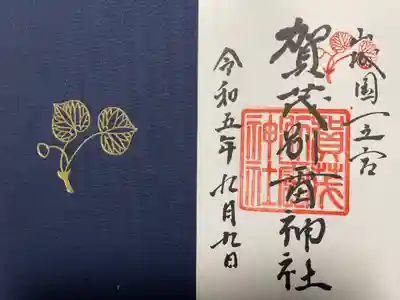 山城国一之宮
賀茂別雷神社
令和五年九月九日
賀茂別雷神社